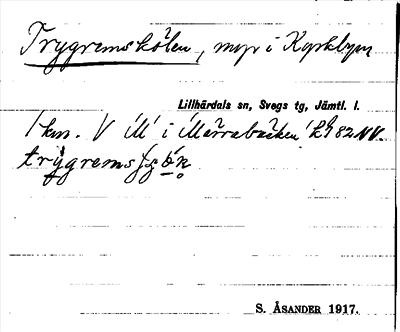 Trygremskölen, myr i Kyrkbyn
Lillhärdals sn, Svegs tg, Jämtl. l.
1 km. V M i Märrabacken 82 NV.
S. ÅSANDER 1917.